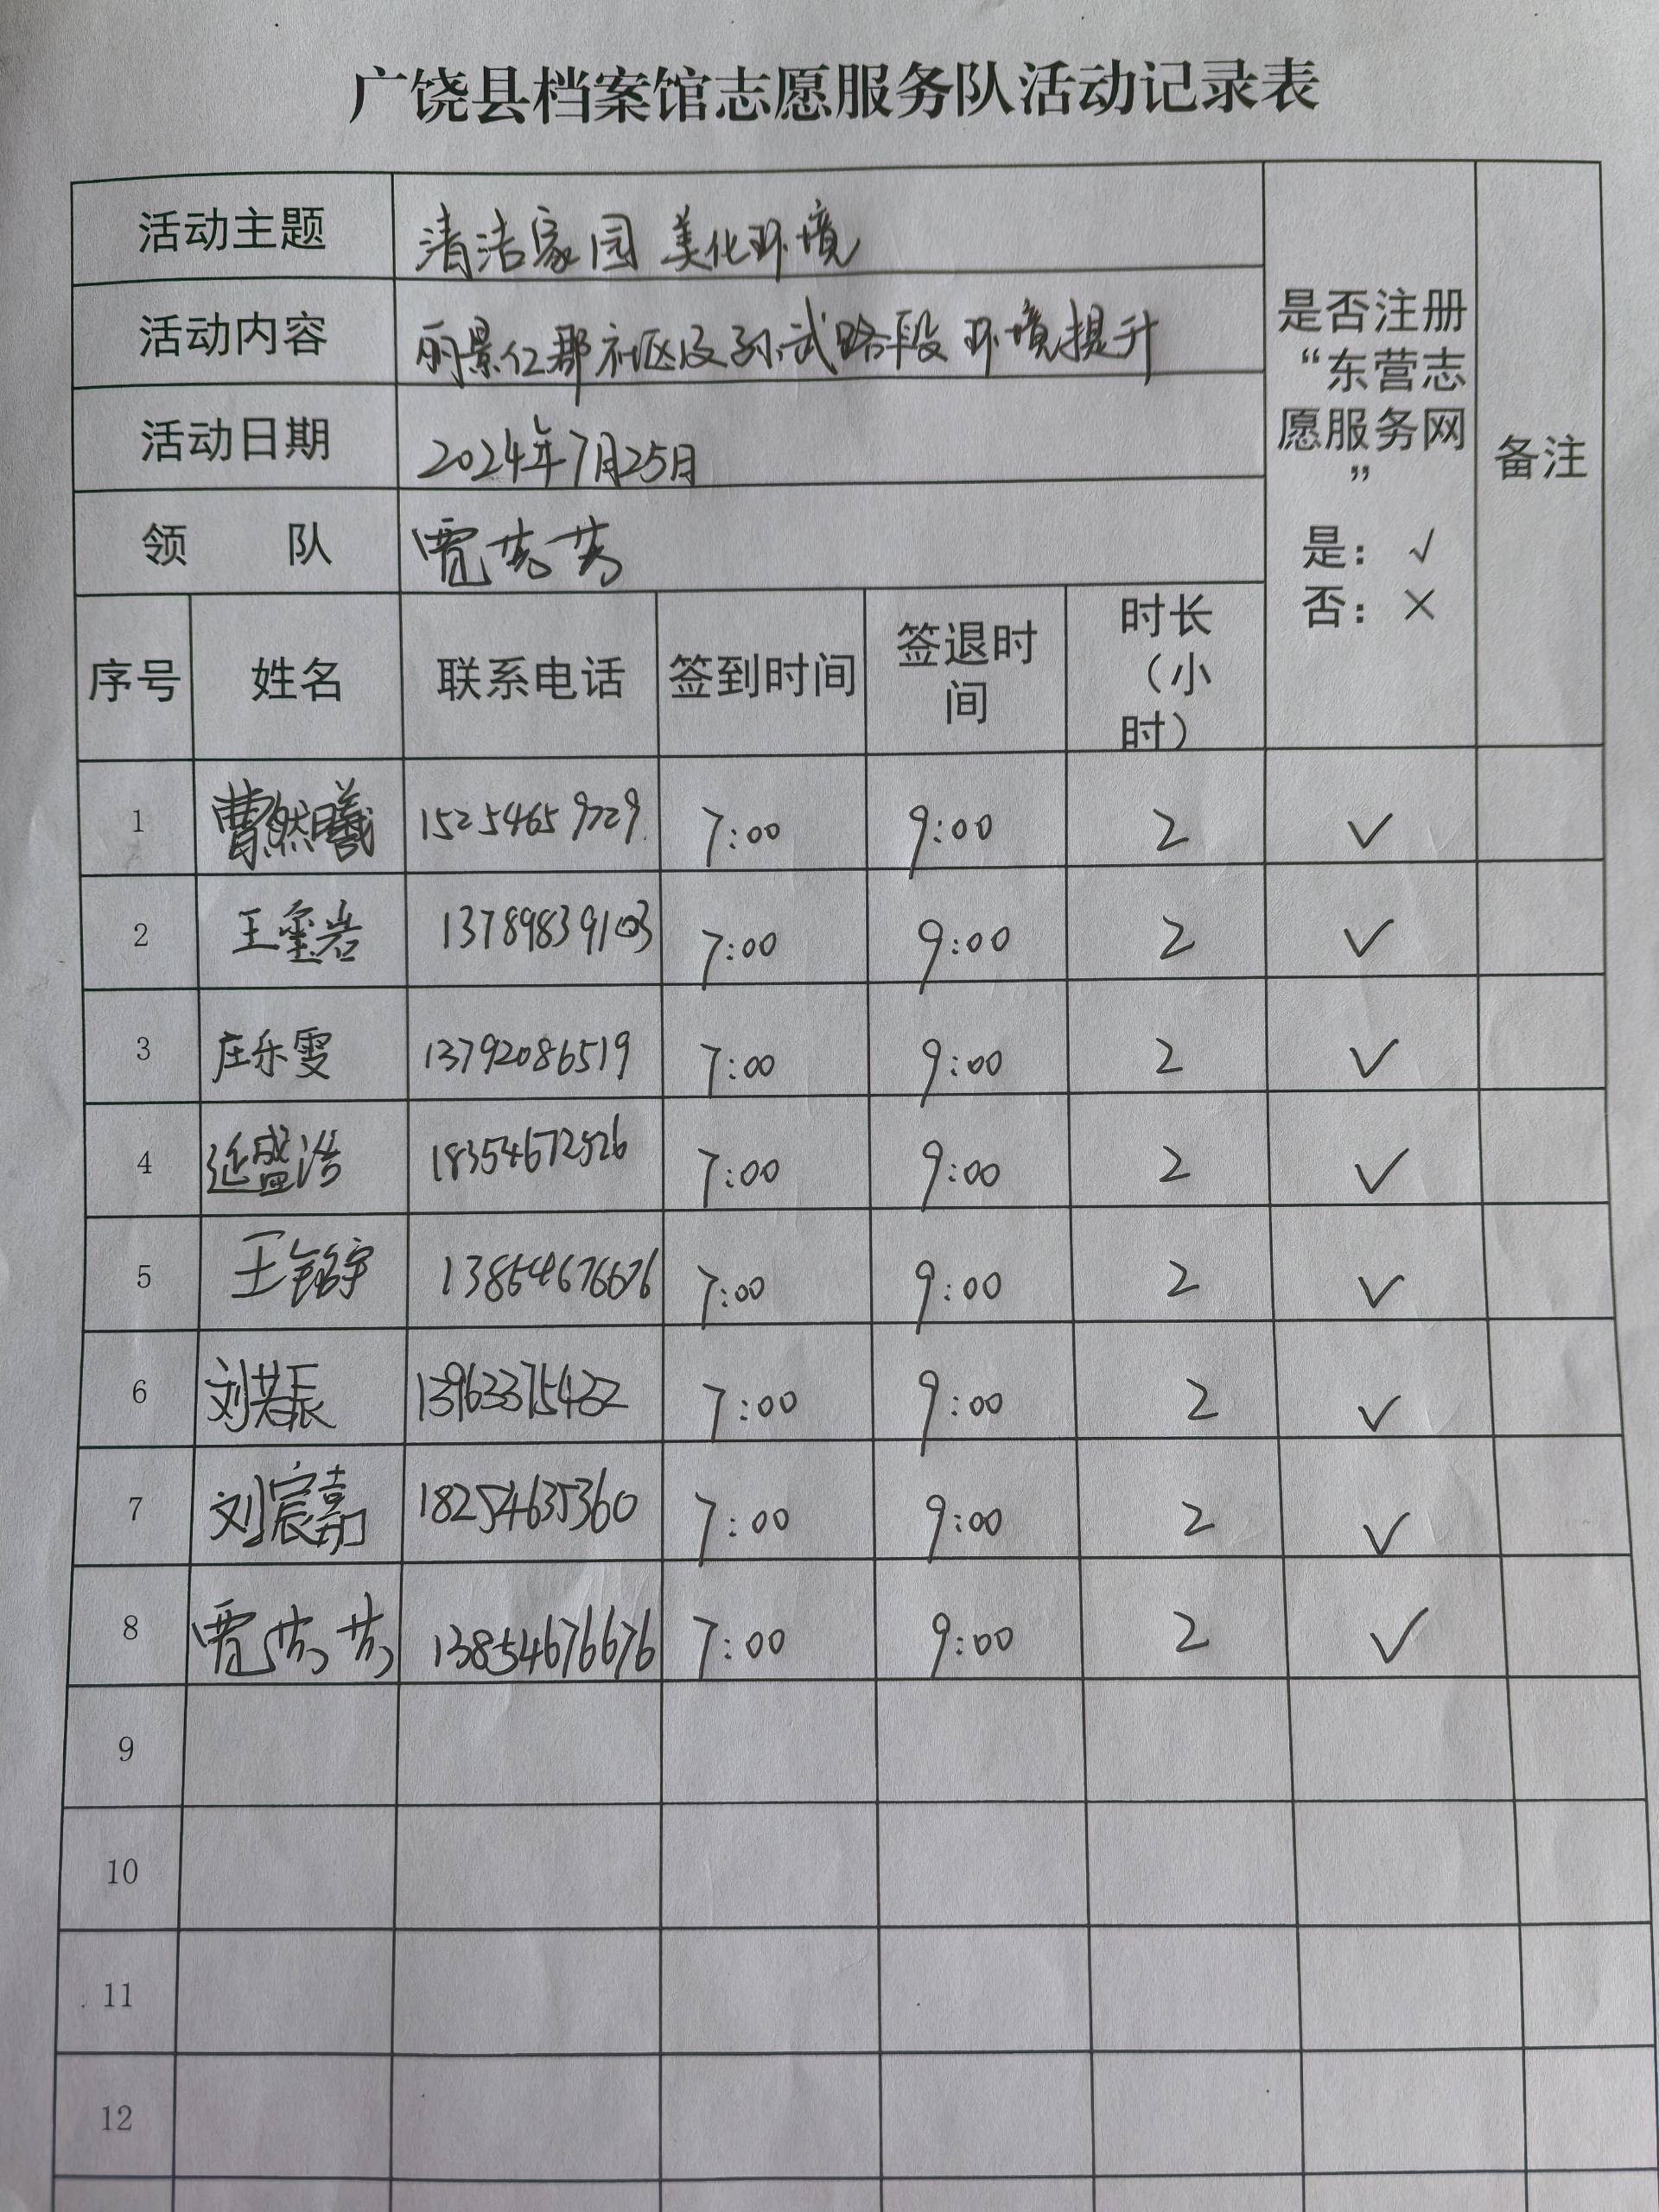 广饶县档案馆志愿服务队活动记录表
活动主题 清洁家园 美化环境
活动内容 丽景仁郡社区及孙武路段环境提升
活动日期 2024年7月25日
领 队 贾芳芳
是否注册
“东营志
愿服务网
”
是：√
否：×
备注
序号 姓名 联系电话 签到时间 签退时间 时长（小时）
1 曹然曦 15254659729 7:00 9:00 2 √
2 王玺岩 13789839103 7:00 9:00 2 √
3 庄乐雯 13792086519 7:00 9:00 2 √
4 延盛浩 18354672526 7:00 9:00 2 √
5 王铭宇 13854676676 7:00 9:00 2 √
6 刘若辰 7:00 9:00 2 √
7 刘宸嘉 18254635360 7:00 9:00 2 √
8 贾芳芳 13854676676 7:00 9:00 2 √
9
10
11
12